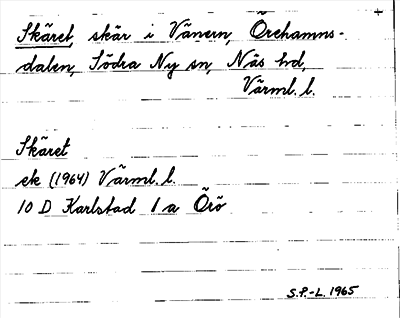 +
Skäret, skär i Vänern, Örehamns-
dalen, Södra Ny sn, Näs hd
Värml. l.
Skäret
ek (1964) Värml. l.
10 D Karlstad 1 a Örö
S.P.-L. 1965